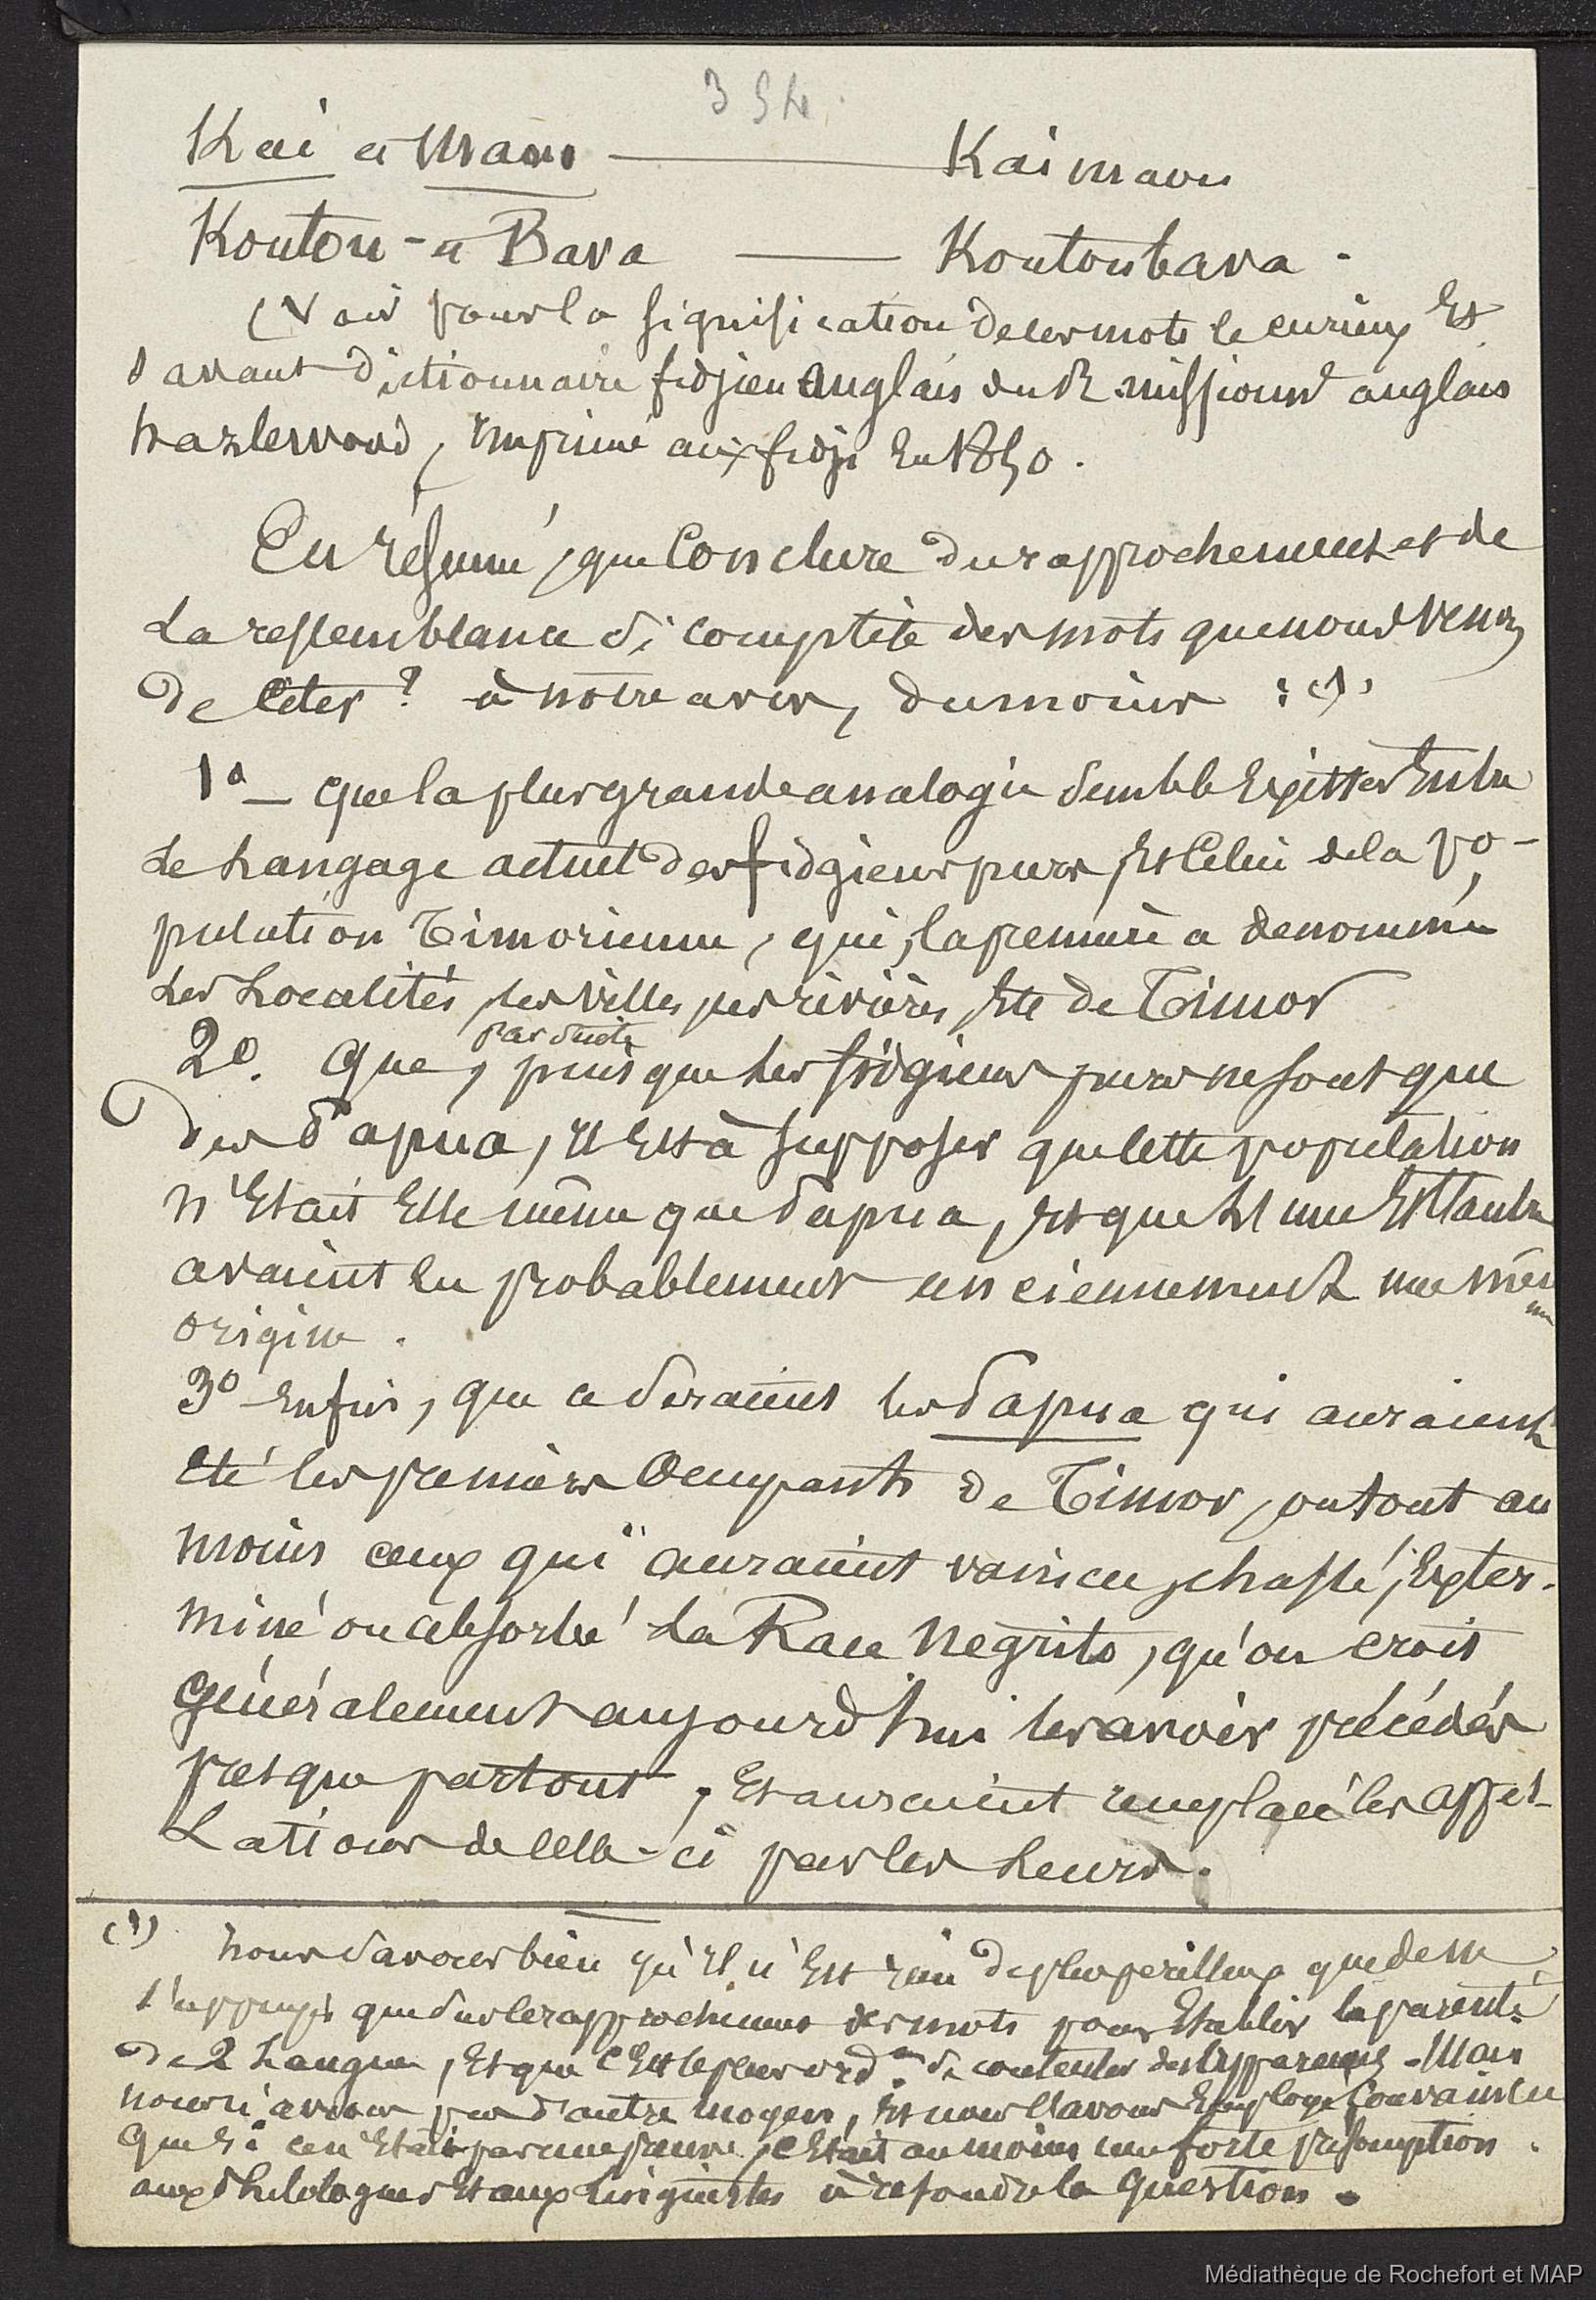 354.
Kai a Mavu — Kaimavu
Koutou-a Bava — Koutoubava.
(Voir pour la signification de ces mots le curieux Et
savant Dictionnaire fidjien anglais du R. missionre anglais
hazlewood, Imprimé aux fidji En 1850.
En résumé, que Conclure du rapprochement et de
La ressemblance si complète des mots que nous venons
de Citer ? à notre avis, du moins : (1).
1º — que la plus grande analogie semble Exister Entre
Le Langage actuel des fidgiens purs, Et Celui de la po-
pulation Timorienne, qui, la première a dénommé
Les Localités, les villes, les rivières, Etc de Timor
par suite
2º. Que, puisque Les fidgiens purs ne sont que
Des Papua, Il Est à supposer que cette population
n'Etait Elle même que Papua, Et que L'une Et l'autre
avaient Eu probablement anciennement une mê
me
origine.
3º Enfin, que ce seraient les Papua qui auraient
Eté les premiers Occupants de Timor, ou tout au
moins ceux qui auraient vaincu, chassé, Exter-
miné ou absorbé La Race Negrito, qu'on croit
Généralement aujourd'hui les avoir précédés
presque partout, Et auraient remplacé les appel-
Lations de Celle-ci par les Leurs.
(1) Nous savons bien qu'Il n'Est rien de plus perilleux que de ne
s'appuyer que sur le rapprochement des mots pour Etablir la parenté
De 2 Langues, Et que c'Est le plus ordre se contenter des Apparences - Mais
nous n'avions pas d'autre moyen, Et nous l'avons Employé Convaincu
Que si ce n'Etait pas une preuve, c'Etait au moins une forte présomption.
aux Philologues Et aux Linguistes à résoudre la Question.
Médiathèque de Rochefort et MAP